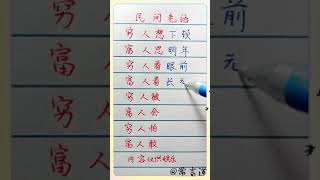 民间老话
穷人想下顿
富人思明年
穷人看眼前
富人看长元
穷人被
富人会
穷人怕
富人敢
内容仅供娱乐